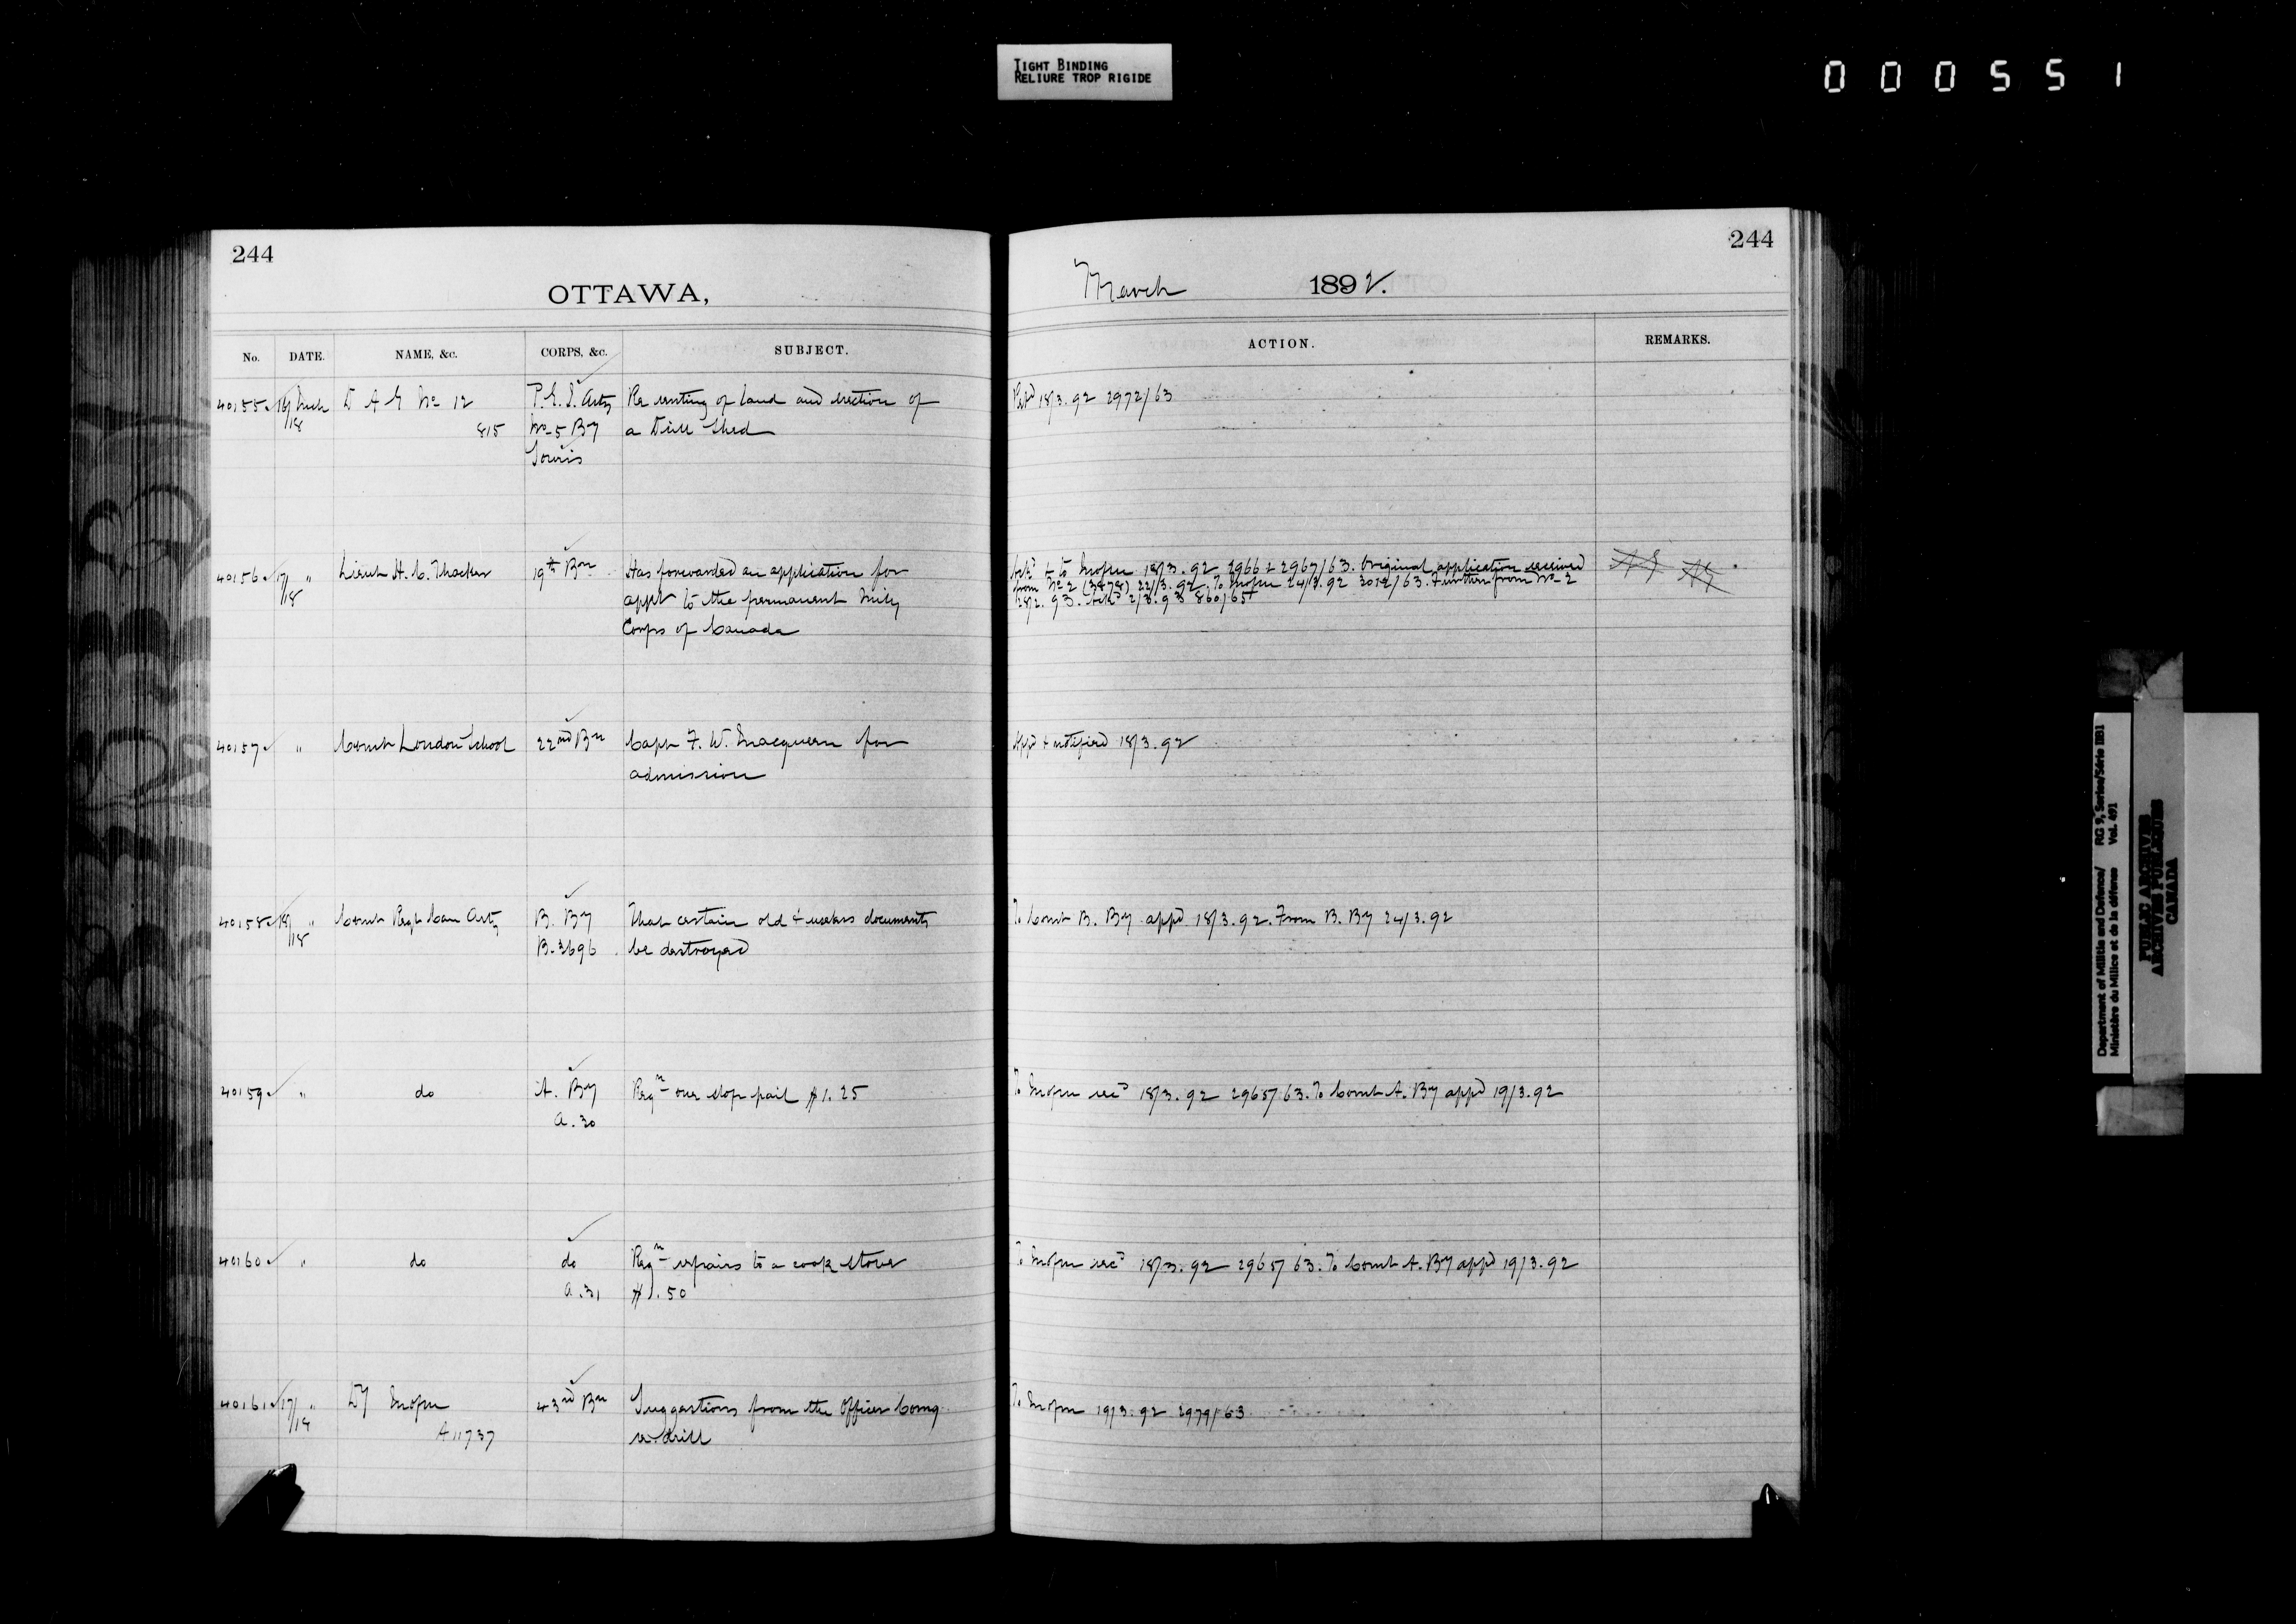 TIGHT BINDING
RELIURE TROP RIGIDE
000551
244
OTTAWA,
No. DATE. NAME, &c. CORPS, &c. SUBJECT.
40155 16/18 Mch D A G No 12 P.E.I. Arty Re renting of land and erection of
815 No 5 By a Drill Shed
Souris
40156 17/18 " Lieut H. C. Thacker 19th Bn Has forwarded an application for
appt to the permanent Mily
Corps of Canada
40157 " Comdt London School 22nd Bn Capt F. W. Macqueen for
admission
40158 18/18 " Comdt Regt Can Arty B. By That certain old & useless documents
B. 3696 be destroyed
40159 " do A. By Reqn one slop pail $1.25
A. 30
40160 " do do Reqn repairs to a cook stove
A. 31 $1.50
40161 17/18 " DM 43rd Bn Suggestions from the Officer Comg
A 11737 re drill
244
March 1892.
ACTION. REMARKS.
Retd 18/3.92 2972/63
Ackd & to 18/3.92 2966 & 2967/63. Original application received
from No 2 (3878) 22/3.92. To 24/3.92 3012/63. Further from No 2
28/2.93. Ackd 2/3.93 860/65
Appd & notified 18/3.92
To Comdt B. By appd 18/3.92. From B. By 24/3.92
To recd 18/3.92 2965/63. To Comdt A. By appd 19/3.92
To recd 18/3.92 2965/63. To Comdt A. By appd 19/3.92
To 19/3.92 2979/63
Department of Militia and Defence/ RG 9, Series/Série IIB1
Ministère du Milice et de la défense Vol. 491
PUBLIC ARCHIVES
ARCHIVES PUBLIQUES
CANADA